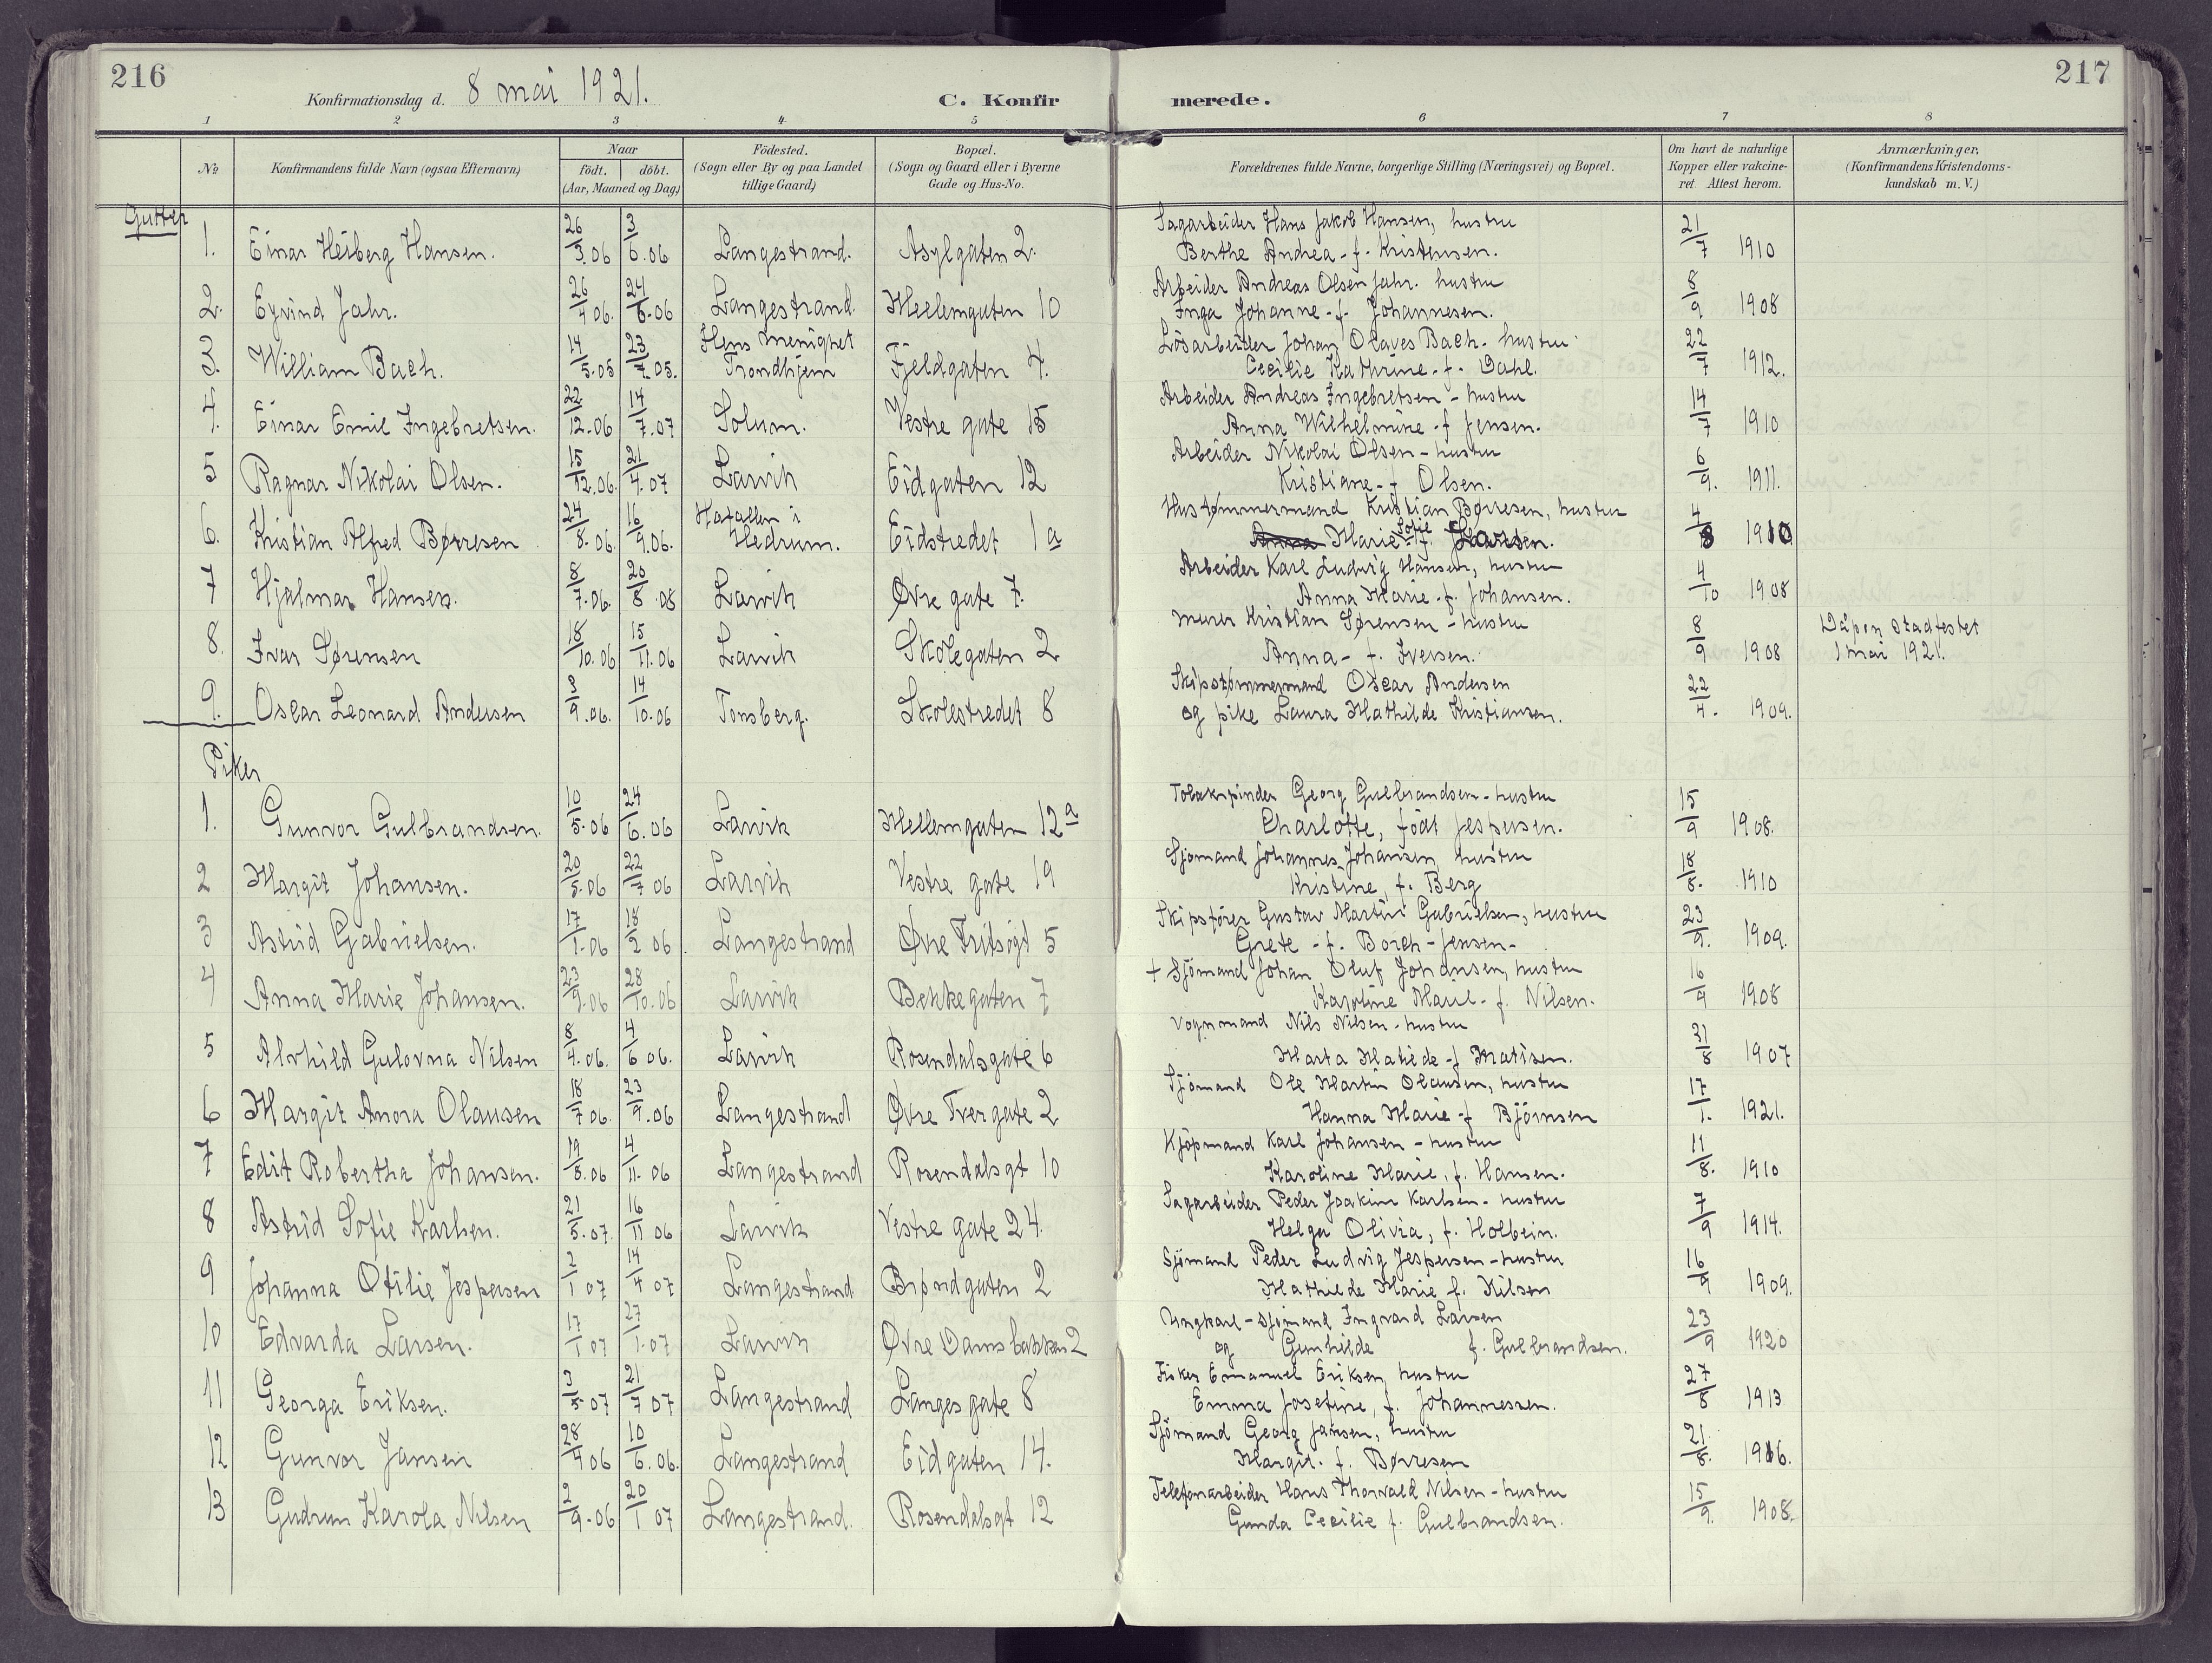 216
Konfirmationsdag d. 8 mai 1921.
C. Konfirmerede.
217
1 2 3 4 5 6 7 8
No. | Konfirmandens fulde Navn (ogsaa Efternavn) | Naar født. døbt. (Aar, Maaned og Dag) | Födested. (Sogn eller By og paa Landet tillige Gaard) | Bopæl. (Sogn og Gaard eller i Byerne Gade og Hus-No. | Forældrenes fulde Navne, borgerlige Stilling (Næringsvei) og Bopæl. | Om havt de naturlige Kopper eller vakcineret. Attest herom. | Anmærkninger. (Konfirmandens Kristendomskundskab m. V.)
Gutter
1. Einar Heiberg Hansen. 26/3.06 3/6.06 Langestrand. Asylgaten 2. Sagarbeider Hans Jakob Hansen, hustru
Berthe Andrea - f. Kristensen. 21/7 1910
2. Eyvind Jahr. 26/4 06. 24/6.06 Langestrand. Mellemgaten 10 Arbeider Andreas Olsen Jahr. hustru
Inga Johanne - f. Johannesen. 8/9 1908
3. William Bach. 14/5.05 23/7.05. menighet
Trondhjem Fjeldgaten 4. Løsarbeider Johan Olaves Bach. hustru
Cecilie Kathrine - f. Dahl. 22/7 1912.
4. Einar Emil Ingebretsen. 22/12.06 14/7.07 Solum. Vestre gate 15 Arbeider Andreas Ingebretsen - hustru
Anna Wilhelmine - f Jensen. 14/7 1910
5 Ragnar Nikolai Olsen. 15/12.06. 21/4.07 Larvik Eidgaten 12 Arbeider Nikolai Olsen - hustru
Kristiane - f Olsen. 6/9. 1911.
6. Kristian Alfred Børresen 24/8.06. 16/9.06. i
Hedrum. Eidstredet 1a Hustømmermand Kristian Børresen, hustru
Anna Marie Sofie f. Larsen. 4/8 1910
7 Hjalmar Hansen. 8/7.06. 20/8.08 Larvik Øvre gate 7. Arbeider Karl Ludvig Hansen, hustru
Anna Marie - f. Johansen. 4/10 1908
8. Ivar Sørensen 18/10.06 15/11.06 Larvik Skolegaten 2 Murer Kristian Sørensen - hustru
Anna - f. Iversen. 8/9 1908 Dåpen stadfestet
1 mai 1921.
9. Oscar Leonard Andersen 9.06. 14/10.06 Tønsberg. Skolestredet 8 Skipstømmermand Oscar Andersen
og pike Laura Mathilde Kristiansen. 22/4. 1909.
Piker
1. Gunvor Gulbrandsen. 10/5.06 24/6.06 Larvik Mellemgaten 12a Tobakspinder Georg Gulbrandsen - hustru
Charlotte, født Jespersen. 15/9 1908.
2 Margit Johansen. 20/5.06 22/7 06 Larvik Vestre gate 19 Sjømand Johannes Johansen, hustru
Kristine, f. Berg 18/8. 1910
3 Astrid Gabrielsen. 17/1.06 18/2 06. Langestrand Øvre Fritsøgt 5 Skipsfører Gustav Martin Gabrielsen, hustru
Grete - f. Borch-Jensen - 23/9. 1909.
4 Anna Marie Johansen. 23/9.06 28/10.06 Larvik Bekkegaten 7 + Sjømand Johan Oluf Johansen, hustru
Karoline Marie - f. Nilsen. 16/9 1908
5 Alvhild Gulovna Nilsen 8/4.06. 4/6 06. Larvik Rosendalsgate 6 Vognmand Nils Nilsen - hustru
Marta Matilde - f Matisen. 31/8 1907
6 Margit Anora Olausen 18/7 06. 23/9.06 Langestrand Øvre Tvergate 2 Sjömand Ole Martin Olausen, hustru
Hanna Marie - f Björnsen 17/1. 1921.
7 Edit Robertha Johansen. 19/8.06 4/11.06 Langestrand Rosendalsgt 10 Kjöpmand Karl Johansen - hustru
Karoline Marie, f. Hansen. 11/8. 1910
8 Astrid Sofie Karlsen. 21/5.07. 16/11 06 Larvik Vestre gate 24. Sagarbeider Peder Joakim Karlsen - hustru
Helga Olivia, f. Holbein. 7/9 1914.
9 Johanna Otilie Jespersen 2/1 07 14/4 07 Langestrand Brøndgaten 2 Sjömand Peder Ludvig Jespersen - hustru
Mathilde Marie f. Nilsen 16/9 1909.
10 Edvarda Larsen. 17/1 07 27/1.07 Larvik Øvre Damsbakken 2 Ungkarl - sjömand Ingvard Larsen
og Gunhilde f. Gulbrandsen. 23/9 1920
11 Georga Eriksen. 3/5.07 21/7 07 Langestrand Langesgate 8 Fisker Emanuel Eriksen, hustru
Emma Josefine, f. Johannessen. 27/8 1913
12 Gunvor Jansen 28/4 06 10/6.06. Langestrand Eidgaten 14. Sjömand Georg Jansen, hustru
Margit. f. Børresen 21/8. 1916.
13 Gudrun Karola Nilsen 2/9.06 20/1 07 Langestrand. Rosendalsgt 12 Telefonarbeider Hans Thorvald Nilsen - hustru
Gunda Cecilie f. Gulbrandsen. 15/9. 1908.